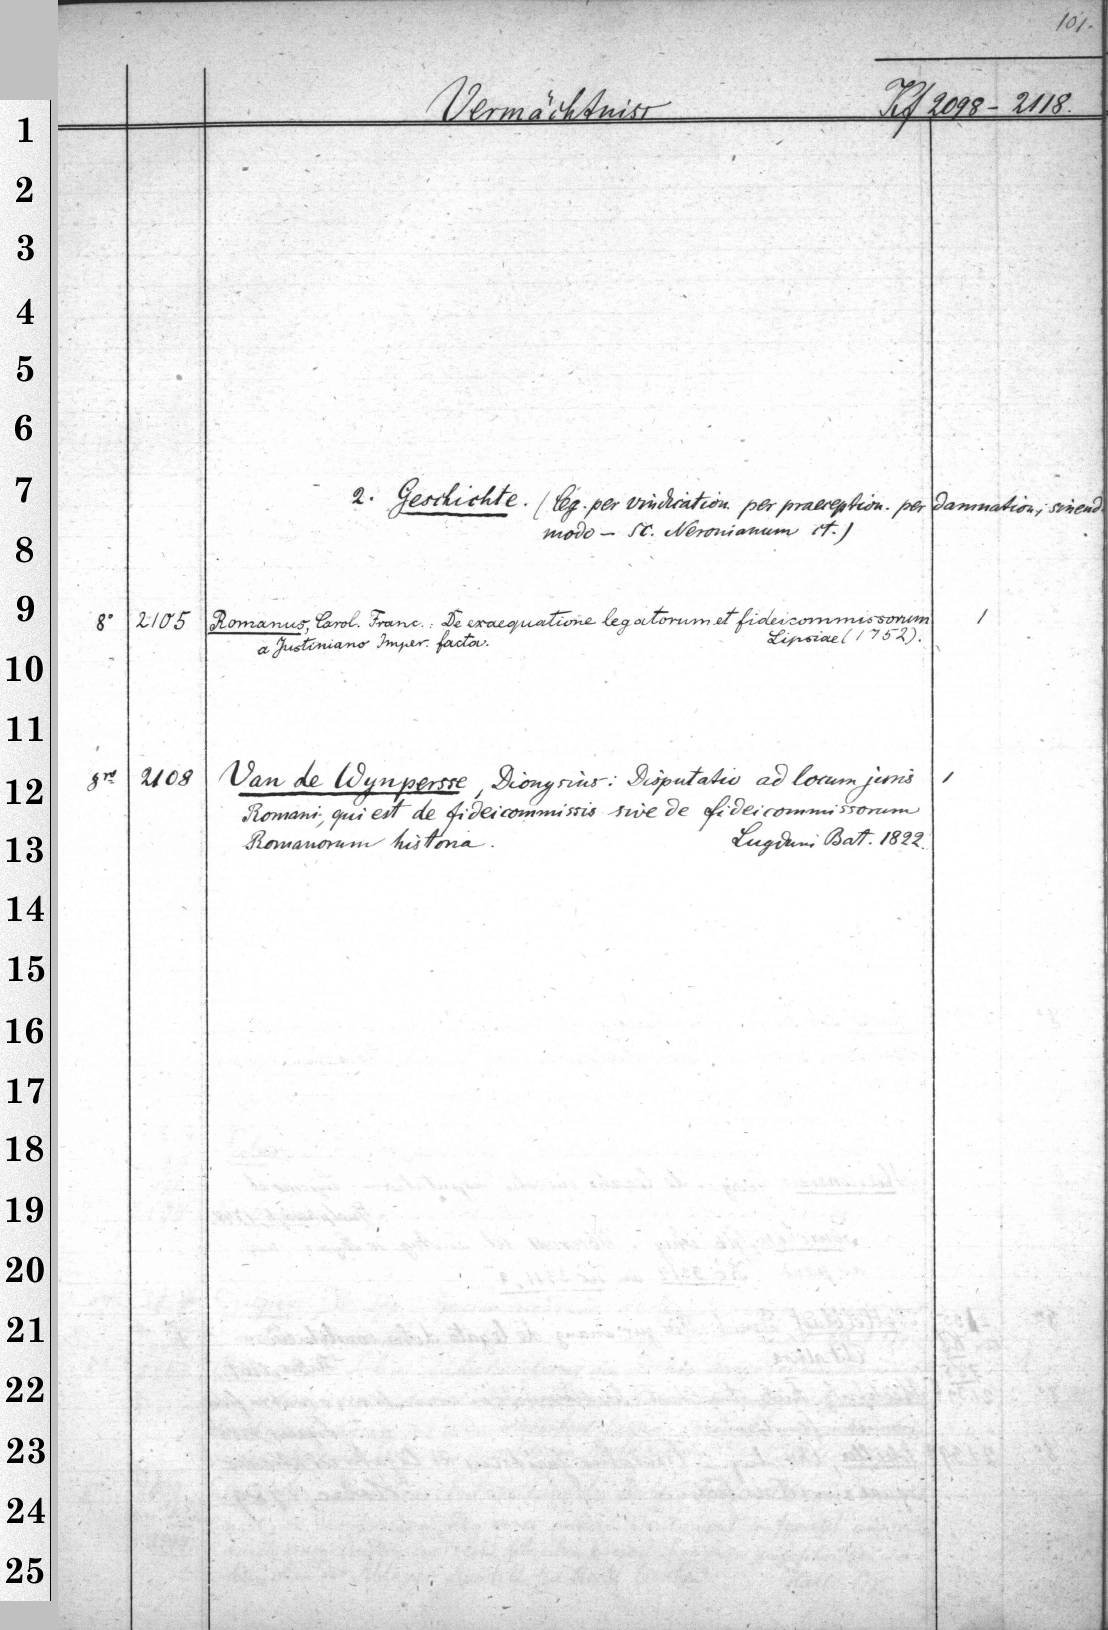 101.
Vermächtniss Kf 2098 - 2118.
1
2
3
4
5
6
7
2. Geschichte. (leg. per vindication. per praeception. per damnation, sinend.
modo - SC. Neronianum ct.)
8
9
8° 2105 Romanus, Carol. Franc.: De exaequatione legatorum et fideicommissorum 1
a Justiniano Imper. facta. Lipsiae (1752).
10
11
12
8vo 2108 Van de Wynpersse, Dionysius: Disputatio ad locum juris 1
Romani, qui est de fideicommissis sive de fideicommissorum
Romanorum historia. Lugduni Bat. 1822.
13
14
15
16
17
18
19
20
21
22
23
24
25